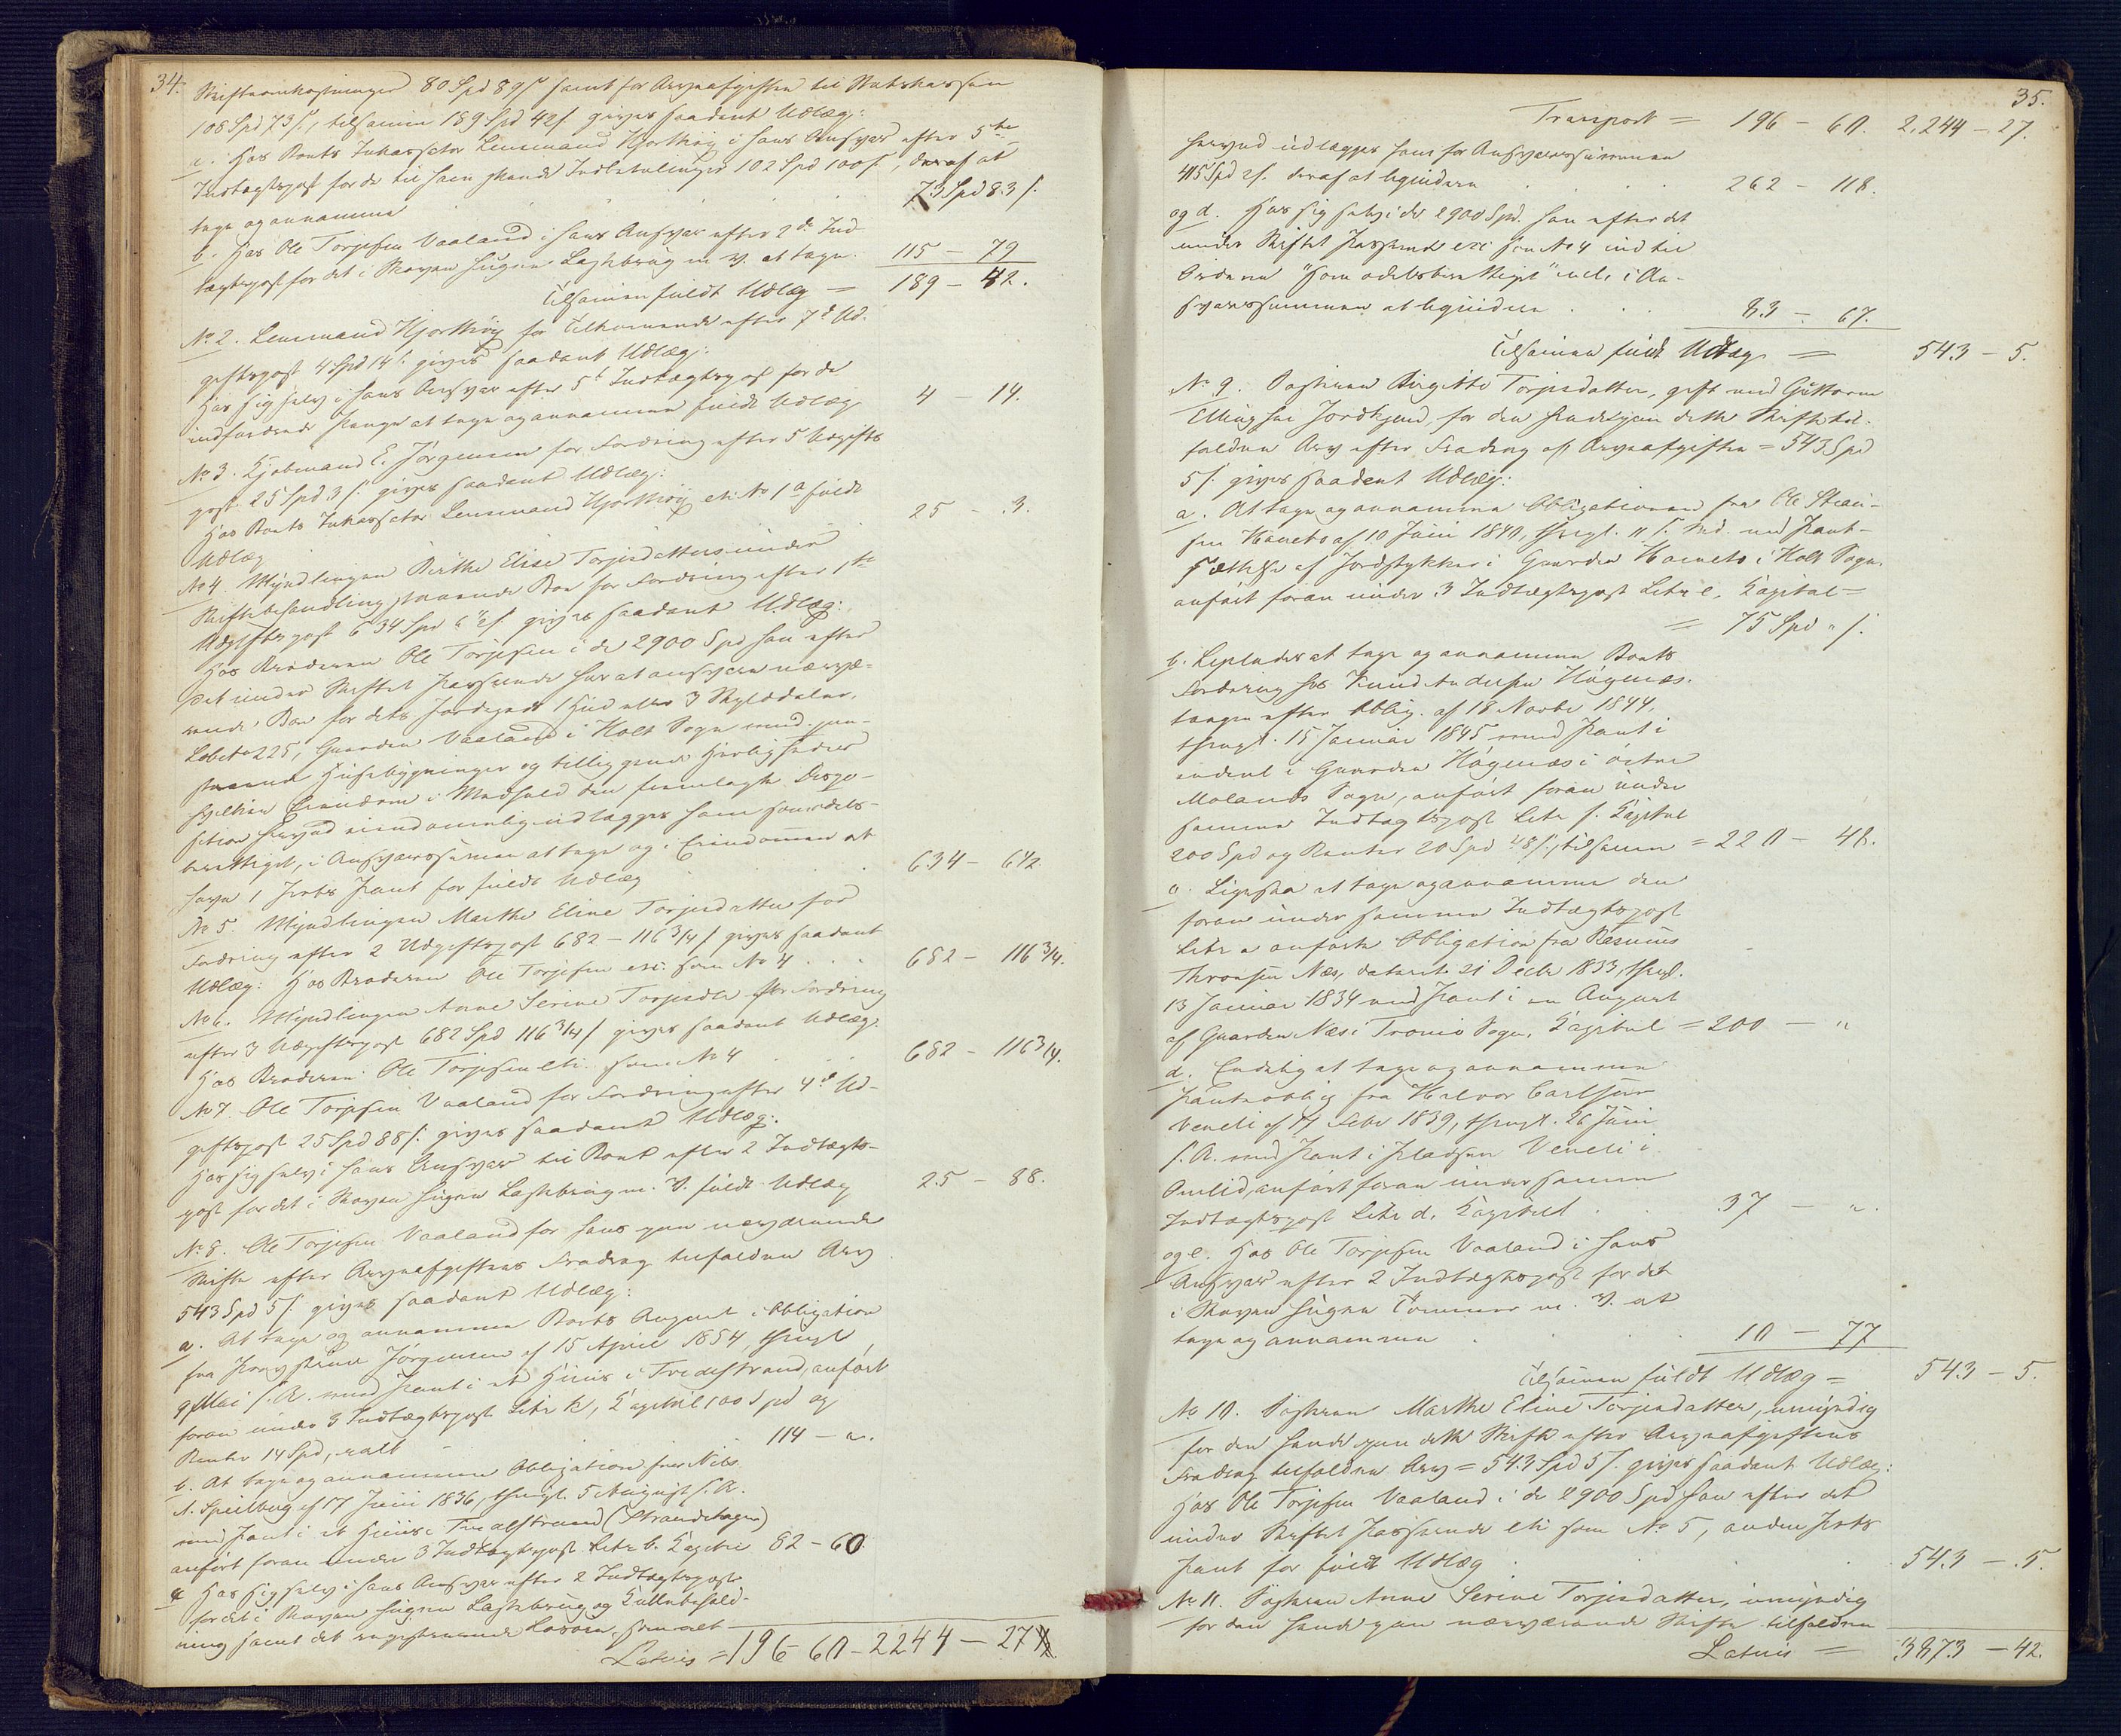 34.
Skifteomkostninger 80 Spd 89 s samt for Arveafgiften til Statskassen
108 Spd 73 s., tilsamen 189 Spd 42 s gives saadant Udlæg:
a. Hos Boets Inkassator Lensmand Hjorthöy i hans Ansvar efter 5te
Indtægtspost for de til ham skeede Indbetalinger 102 Spd 100 s, deraf at
tage og annamme 73 Spd 83 s.
b. Hos Ole Torjesen Vaaland i hans Ansvar efter 2de Ind-
tægtspost for det i Skoven hugne Lastebrug m. V. at tage. 115 – 79
Tilsamen fuldt Udlæg = 189 – 42.
No 2. Lensmand Hjorthöy for Tilkommende efter 7d Ud-
giftspost 4 Spd 14 s. gives saadant Udlæg:
Hos sig selv i hans Ansvar efter 5t Indtægtspost for de
indfordrede Penge at tage og annamme fuldt Udlæg 4 14.
No 3. Kjöbmand E. Jörgensen for Fordring efter 5 Udgifts
post 25 Spd 3 s. gives saadant Udlæg:
Hos Boets Inkassator Lensmand Hjorthöy etc. No 1 a fuldt
Udlæg 25 – 3.
No 4. Myndlingen Birthe Elise Torjesdatters under
Skiftebehandling staaende Boe for Fordring efter 1te
Udgiftspost 634 Spd 6½ s gives saadant Udlæg:
Hos Broderen Ole Torjesen i de 2900 Spd han efter
det under Skiftet Passerede har at ansvare nærvæ-
rende Boe for dets Jordegods 1 Hud eller 3 Skylddaler,
Löbeno 225, Gaarden Vaaland i Holt Sogn med paa-
staaende Huusebygninger og tilliggende Herligheder
hvilken Eiendom i Medhold den fremlagte Dispo-
sition herved eiendommelig udlægges ham som odels-
berettiget, i Ansvarssummen at tage og i Eiendommen at
have 1 Prts Pant for fuldt Udlæg 634 – 6½
No 5. Myndlingen Marthe Eline Torjesdatter for
Fordring efter 2 Udgiftspost 682 – 116 3/4 s gives saadant
Udlæg: Hos Broderen Ole Torjesen etc. som No 4 . . . 682 – 116 3/4.
No 6. Myndlingen Anne Serine Torjesdtr for Fordring
efter 3 Udgiftspost 682 Spd 116 3/4 s gives saadant Udlæg:
Hos Broderen Ole Torjesen etc. som No 4 . . . 682 – 116 3/4.
No 7. Ole Torjesen Vaaland for Fordring efter 4d Ud-
giftspost 25 Spd 88 s. gives saadant Udlæg:
Hos sig selv i hans Ansvar til Boet efter 2 Indtægts-
post for det i Skoven hugne Lastebrug m. V. fuldt Udlæg 25 – 88.
No 8. Ole Torjesen Vaaland for hans paa nærværende
Skifte efter Arveafgiftens Fradrag tilfaldne Arv
543 Spd 5 s. gives saadant Udlæg:
a. At tage og annamme Boets Anpart i Obligation
fra Jörgensen af 15 April 1854, thingl.
9 Mai s. A. med Pant i et Huus i Tvedestrand, anfört
foran under 3 Indtægtspost Litr k, Kapital 100 Spd og
Renter 14 Spd, ialt – 114 – „.
b. At tage og annamme Obligation fra Nils
A. Speilberg af 17 Juni 1836, thingl. 5 August s. A.
med Pant i et Huus i Tvedestrand (Strandetagen)
anfört foran under 3 Indtægtspost Litr b. Kapital 82 – 60
c Hos sig selv i hans Ansvar efter 2 Indtægtspost
for det i Skoven hugne Lastebrug og Kullebehold-
ning samt det Lösöre, fremalt
Latus = 196 – 60 – 2244 – 27
35.
Transport = 196 – 60. 2,244 – 27.
herved udlægges ham for Ansvarssummen
415 Spd 2 s. deraf at liqvidere . . . 262 – 118.
og d. Hos sig selv i de 2900 Spd. han efter det
under Skiftet Passerede etc som No 4 indtil
Ordene "som odelsberettiget" incl. i An-
svarssummen at liqvidere . . . 83 – 67.
Tilsamen fuldt Udlæg = 543 – 5.
No 9. Sösteren Birgitte Torjesdatter, gift med Guttorm
Ellingsen Jordkjend, for den hende paa dette Skifte til-
faldne Arv efter Fradrag af Arveafgiften = 543 Spd
5 s. gives saadant Udlæg:
a. At tage og annamme Obligationen fra Ole Steen-
sen Haveto af 10 Juni 1840, thingl. 11 s. Md. med Pant-
sættelse af Jordstykker i Gaarden Haveto i Holt Sogn,
anfört foran under 3 Indtægtspost Litr e, Kapital =
= 75 Spd „ s.
b. Ligeledes at tage og annamme Boets
Fordring hos Knud Andersen Högenæs-
tangen efter Oblig. af 18 Novbr 1844,
thingl. 15 Januar 1845 med Pant i
endeel i Gaarden Högenæs i östre
Molands Sogn, anfört foran under
samme Indtægtspost Litr f. Kapital
200 Spd og Renter 20 Spd 48 s., tilsamen = 220 – 48.
c. Ligesaa at tage og annamme den
foran under samme Indtægtspost
Litr a anförte Obligation fra Rasmus
Thronsen Næs, dateret 21 Decbr 1833, thingl.
13 Januar 1834 med Pant i en Anpart
af Gaarden Næs i Tromö Sogn, Kapital = 200 – „
d. Endelig at tage og annamme
Panteoblig fra Halvor Carlsen
Veneli af 14 Febr 1839, thingl. 26 Juni
s. A. med Pant i Pladsen Veneli i
Omlid, anfört foran under samme
Indtægtspost Litr d. Kapital . 37 – „.
og e. Hos Ole Torjesen Vaaland i hans
Ansvar efter 2 Indtægtspost for det
i Skoven hugne Tömmer m. V. at
tage og annamme . . . 10 – 77
Tilsamen fuldt Udlæg = 543 – 5.
No 10. Sösteren Marthe Eline Torjesdatter, umyndig
for den hende paa dette Skifte efter Arveafgiftens
Fradrag tilfaldne Arv = 543 Spd 5 s. gives saadant Udlæg:
Hos Ole Torjesen Vaaland i de 2900 Spd han efter det
under Skiftet Passerede etc som No 5, anden Prts
Pant for fuldt Udlæg . . . 543 – 5.
No 11. Sösteren Anne Serine Torjesdatter, umyndig
for den hende paa nærværende Skifte tilfaldne
Latus = 3873 – 42.